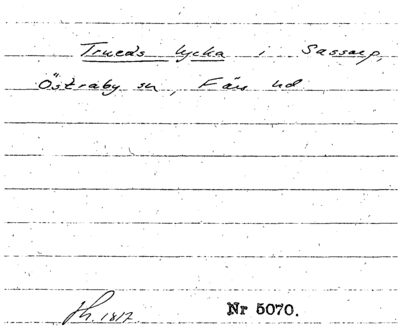 Trueds lycka i Sassarp,
Östraby sn, Färs hd
Jh. 1817. Nr 5070.